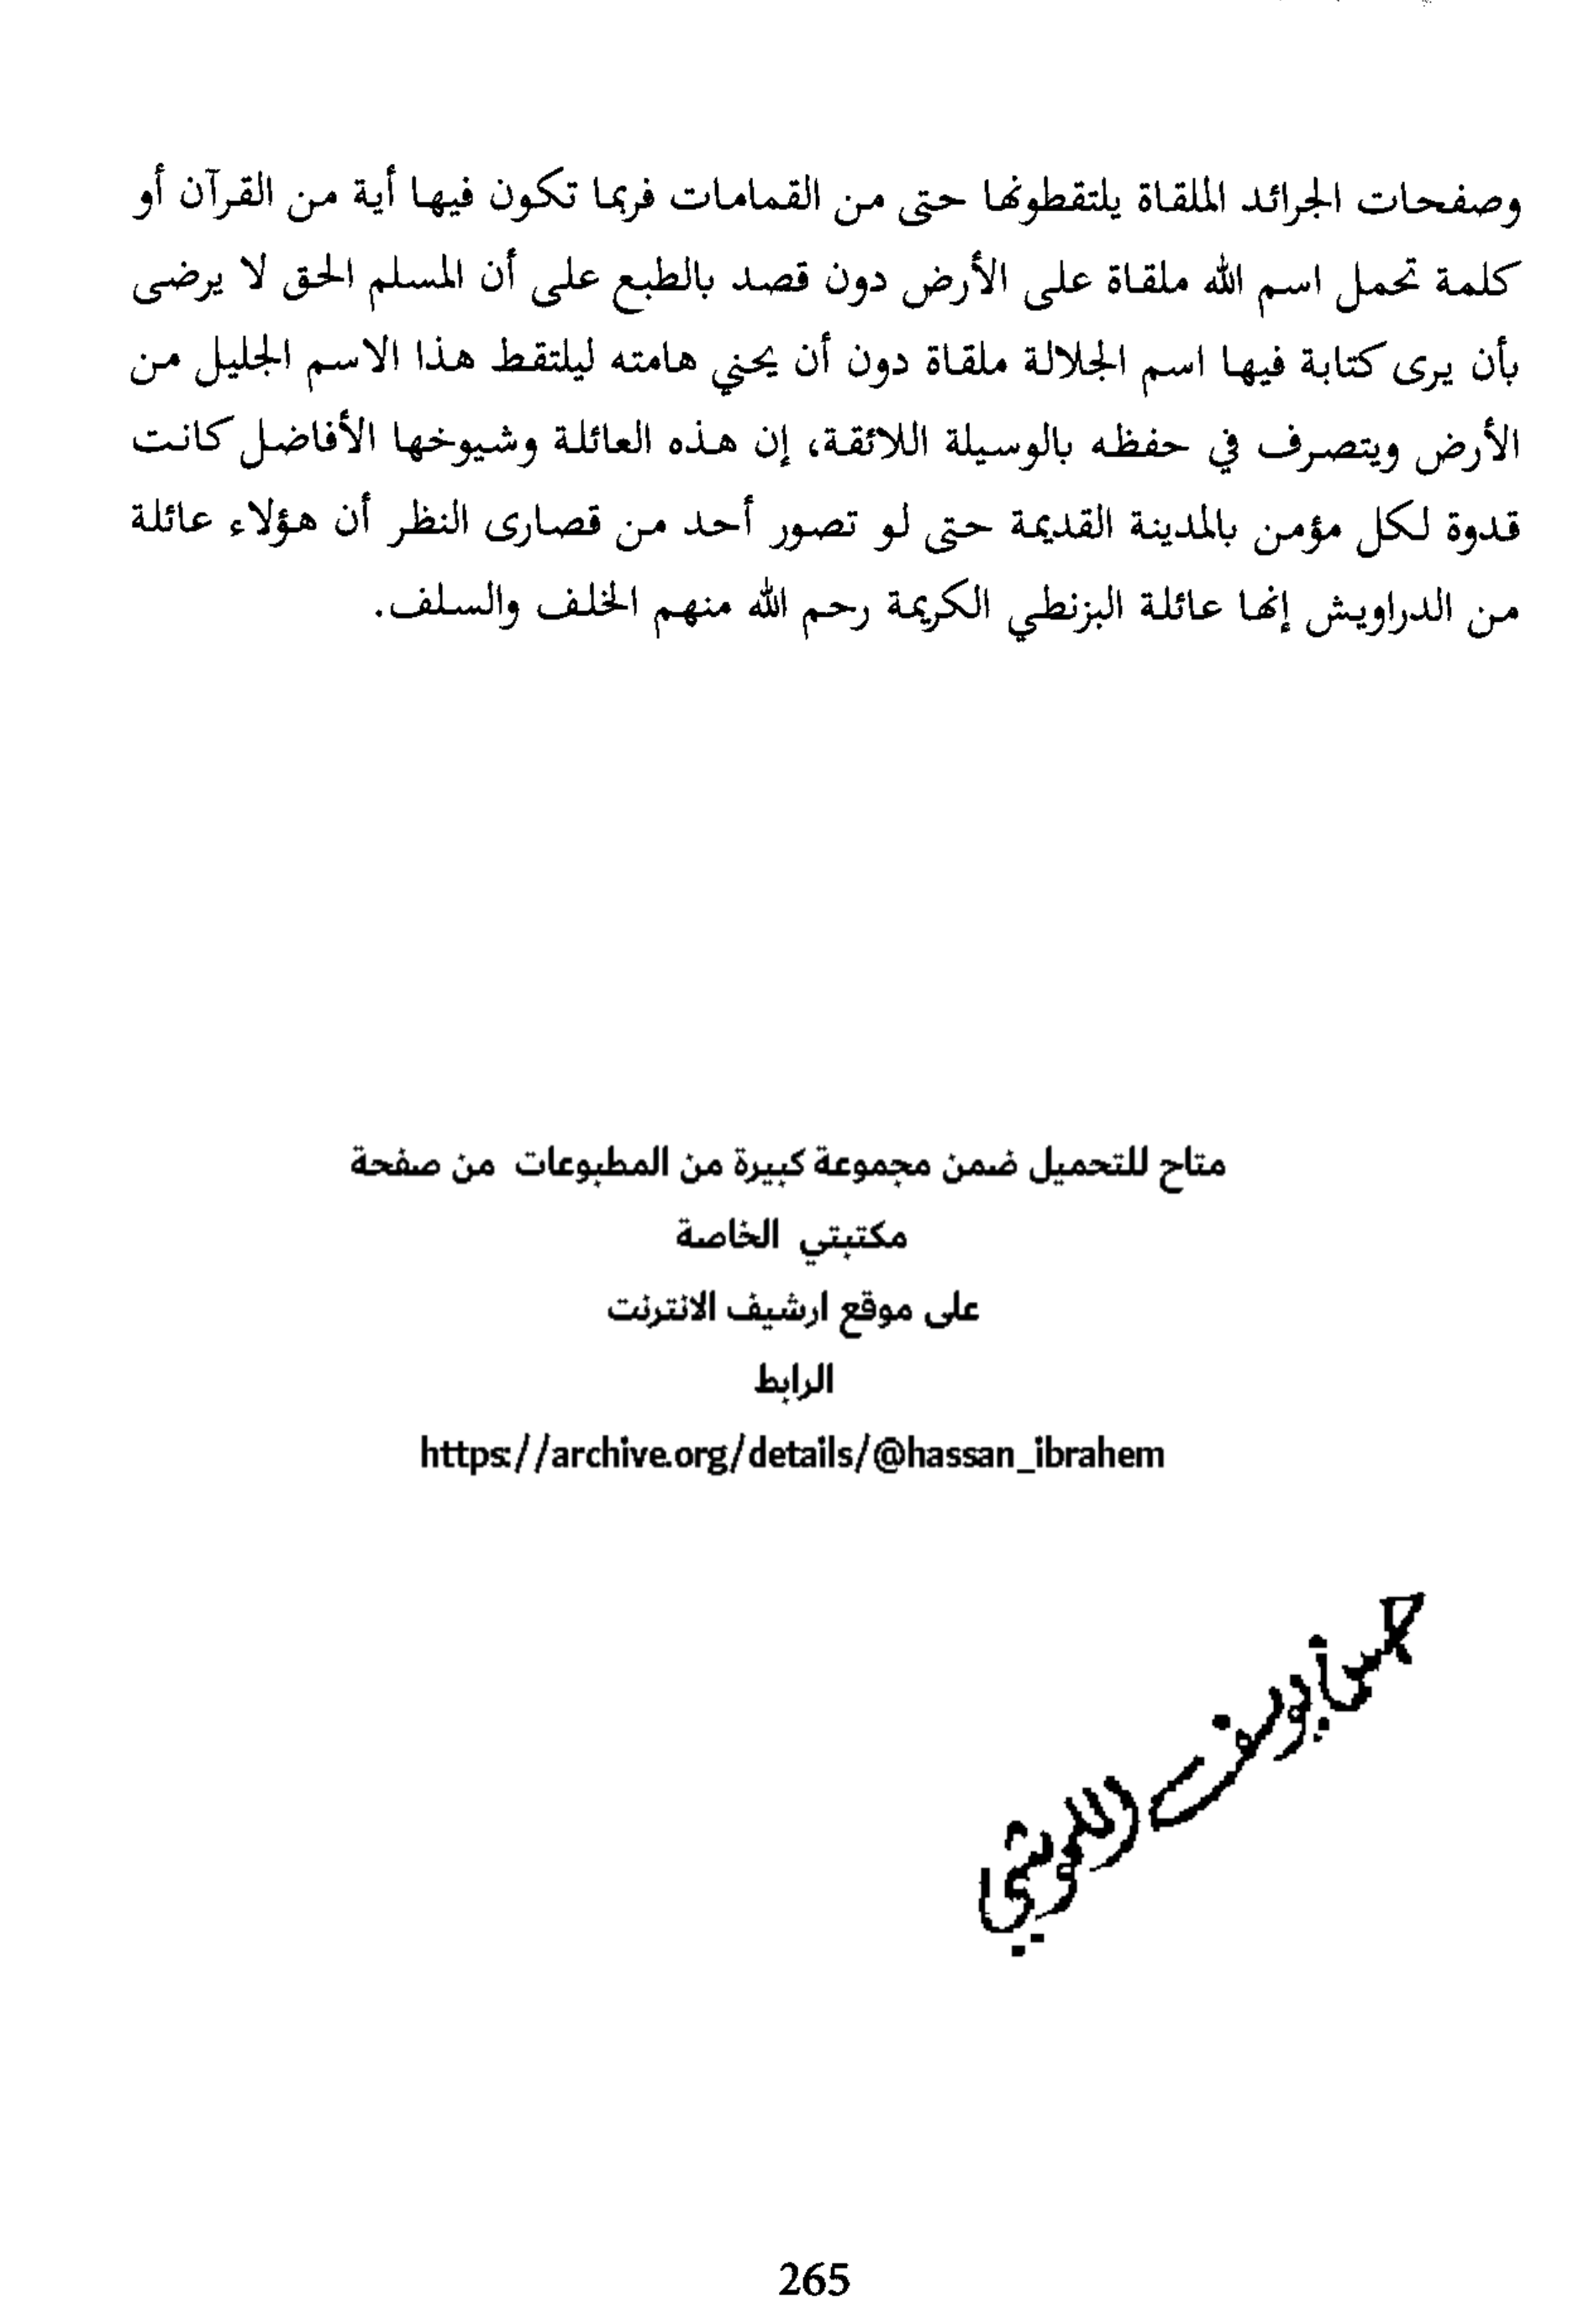 وصفحات الجرائد الملقاة يلتقطونها حتى من القمامات فربما تكون فيها أية من القرآن أو
كلمة تحمل اسم الله ملقاة على الأرض دون قصد بالطبع على أن المسلم الحق لا يرضى
بأن يرى كتابة فيها اسم الجلالة ملقاة دون أن يحني هامته ليلتقط هذا الاسم الجليل من
الأرض ويتصرف في حفظه بالوسيلة اللائقة، إن هذه العائلة وشيوخها الأفاضل كانت
قدوة لكل مؤمن بالمدينة القديمة حتى لو تصور أحد من قصارى النظر أن هؤلاء عائلة
من الدراويش إنها عائلة البزنطي الكريمة رحم الله منهم الخلف والسلف.
متاح للتحميل ضمن مجموعة كبيرة من المطبوعات من صفحة
مكتبتي الخاصة
على موقع ارشيف الانترنت
الرابط
https://archive.org/details/@hassan_ibrahem
265